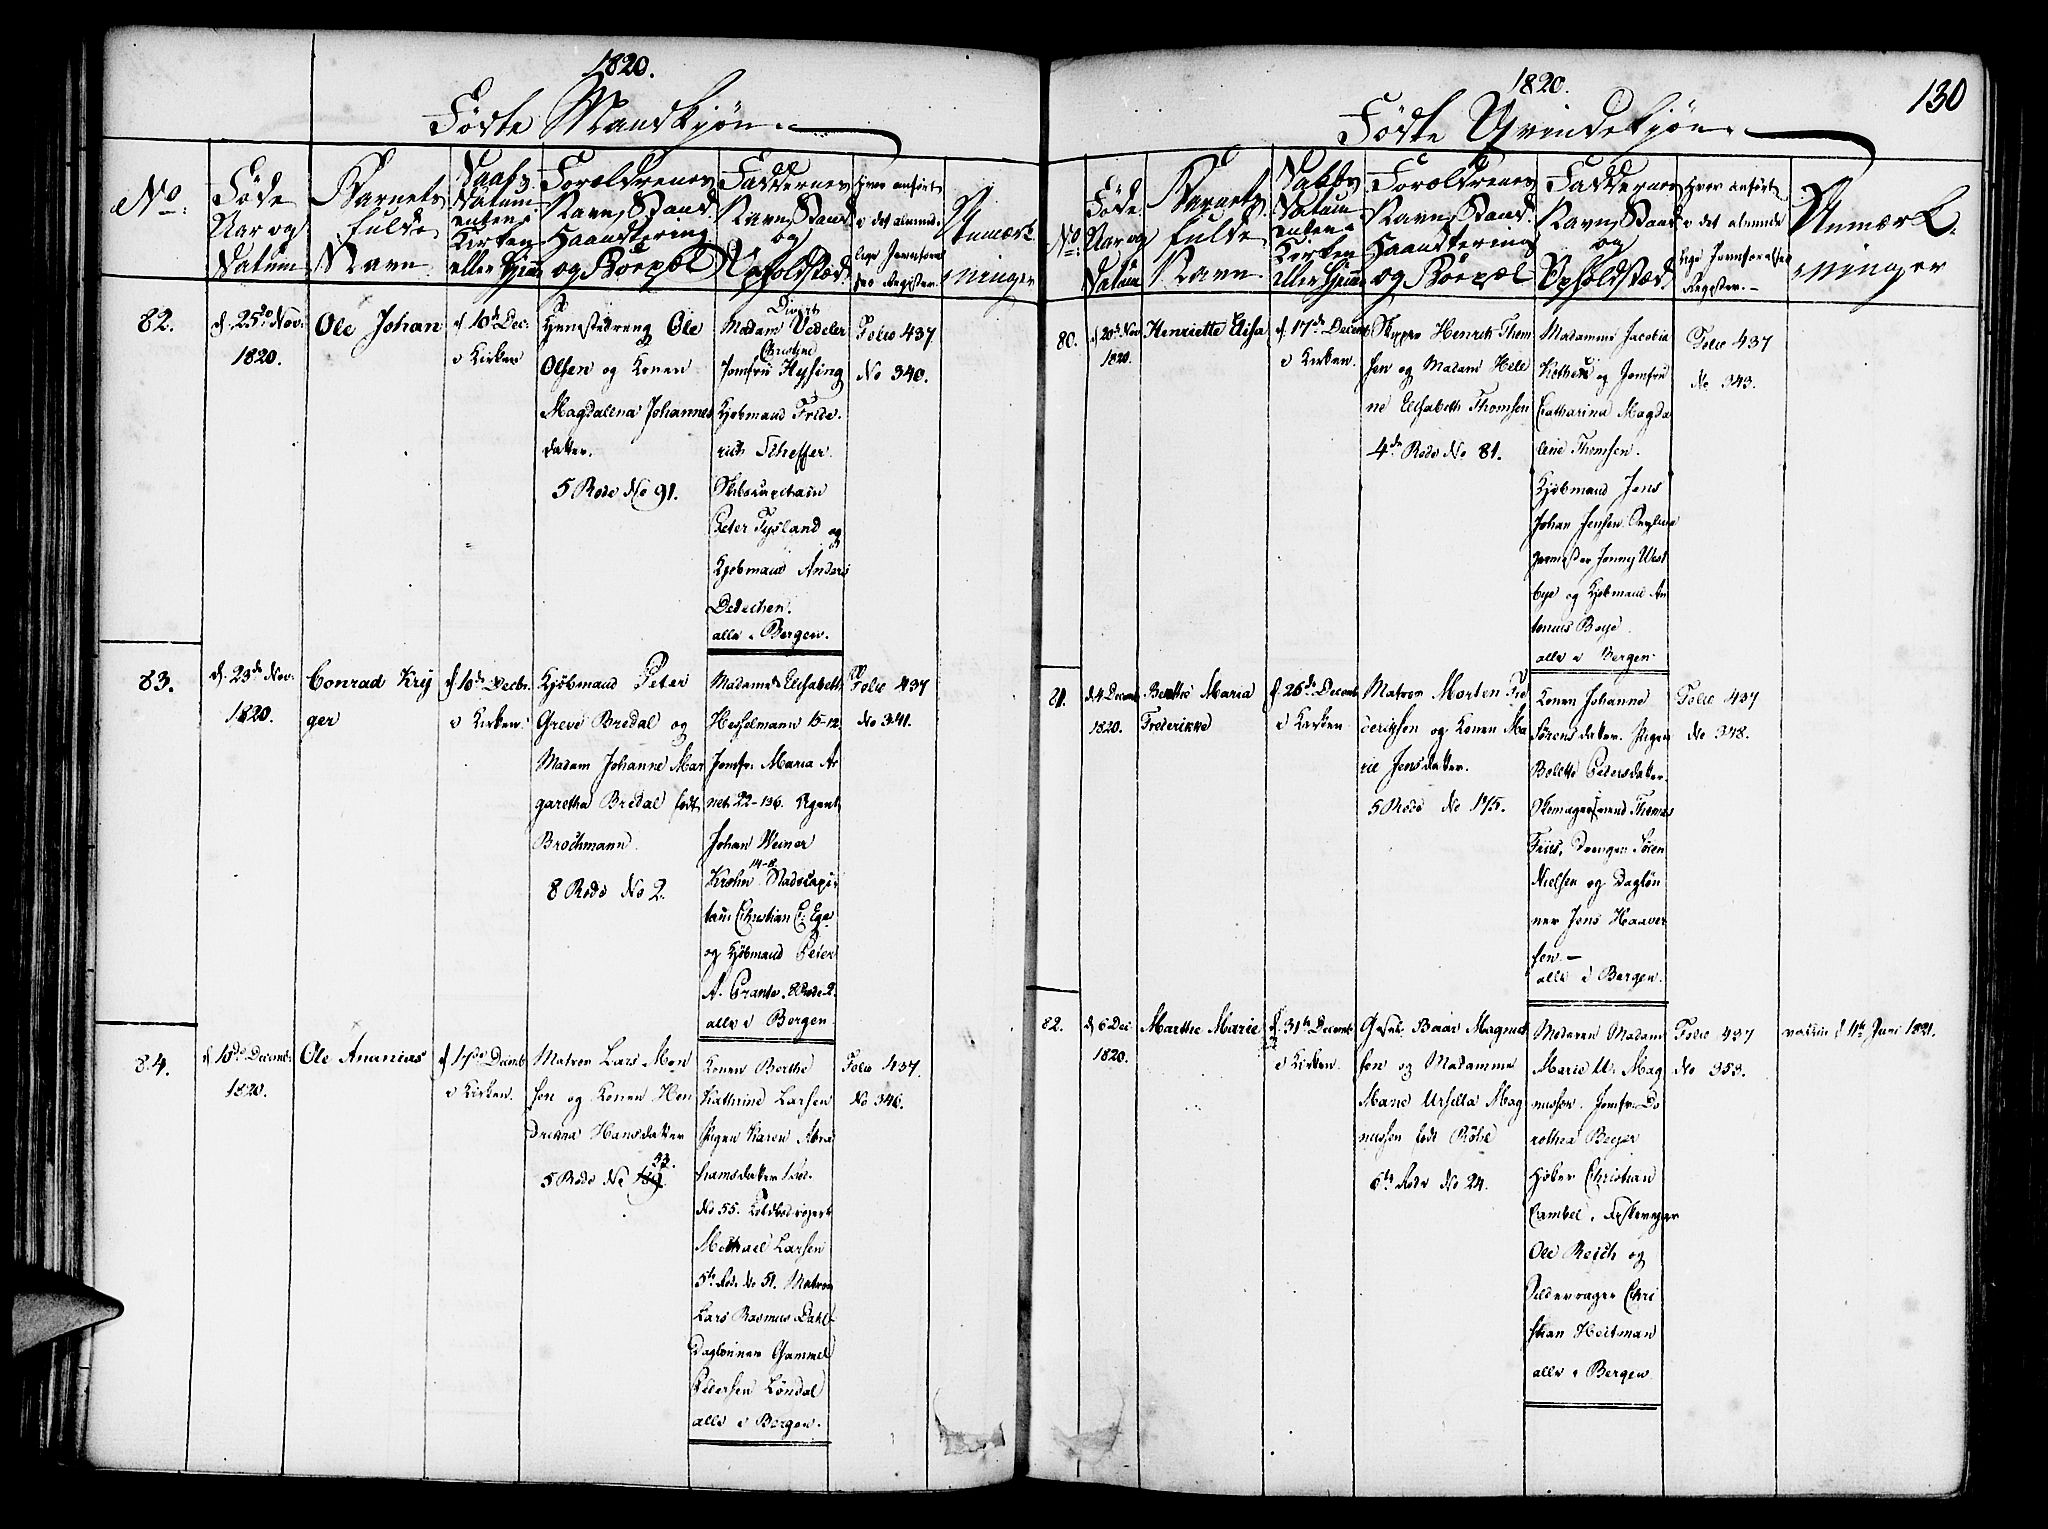 1820.
Fødte Mandkjøn.
No.
Føde
Aar og
Datum
Barnets
fulde
Navn
Daabs
Datum
enten i
Kirken
eller Hjem
Forældrenes
Navn, Stand
Haandtering
og Boepæl
Faddernes
Navn, Stand
og
Opholdsted
Hvor anført
i det alminde
lige Jevnførel
ses Register.
Anmærk
ninger
82.
d. 25de Nov.
1820.
Ole Johan
d. 10de Dec.
i Kirken
Ole
Olsen og Konen
Magdalena Johannes
datter.
5 Rode No 91.
Madam Vedeler
Christine
Jomfru Hysing
Kjøbmand Fride
rich Scheffer
Skibscapitain
Peter Tysland og
Kjøbmand Anders
Dedechen.
alle i Bergen.
Folio 437
No 340.
83.
d. 23de Nov.
1820.
Conrad Kry
ger
d. 10de Decbr.
i Kirken.
Kjøbmand Peter
Greve Bredal og
Madam Johanne Mar
garetha Bredal født
Brochmann.
8 Rode No 2.
Madame Elisabeth
Hesselmann 15-12
Jomfr. Maria Ar
netz 22-136. Agent
Johan Weiner
14-8.
Krohn Stadscapi
tain Christian C. Ege
og Kjøbmand Peter
A. Grante. 8 Rode 2.
alle i Bergen
Folio 437
No 341.
84.
d. 10de Decemb.
1820.
Ole Ananias
d. 17de Decemb
i Kirken.
Matros Lars Mon
sen og Konen Hen
drikka Hansdatter
53.
5 Rode No 189.
Konen Berthe
Kathrine Larsen
Pigen Karen Abra
hamsdatter
No 55.
Michael Larsen
5te Rode No 51. Matros
Lars Rasmus Dahl
Daglønner Gammel
Pedersen Løndal
alle i Bergen.
Folio 437.
No 346.
1820.
130
Fødte Qvindekjøn.
No.
Føde
Aar og
Datum
Barnets
fulde
Navn
Daabs
Datum
enten i
Kirken
eller Hjem
Forældrenes
Navn, Stand
Haandtering
og Boepæl
Faddernes
Navn, Stand
og
Opholdsted
Hvor anført
i det alminde
lige Jevnførelses
Register.
Anmærk
ninger
80.
d. 20de Nov
1820.
Henriette Elisa
d. 17de Decemb
i Kirken.
Skipper Henrik Thom
sen og Madam Hele
ne Elisabeth Thomsen
4de Rode No 81.
Madamme Jacobia
og Jomfru
Catharina Magda
lene Thomsen.
Kjøbmand Jens
Johan Jensen
Jonny West
bye og Kjøbmand An
tonius Beyer
alle i Bergen.
Folio 437
No 343.
81.
d. 4 Decemb
1820.
Berthe Maria
Frederikke
d. 26de Decemb
i Kirken
Matros Morten Fre
deriksen og Konen Ma
rie Jensdatter.
5 Rode No 175.
Konen Johanne
Sørensdatter. Pigen
Bolette Pedersdatter.
Skomagersvend Thomas
Friis, Drengen Søren
Nielsen og Dagløn
ner Jens Haaver
sen.
alle i Bergen.
Folio 437
No 348.
82.
d. 6 Dec.
1820.
Marthe Marie
d. 31te Decemb
i Kirken.
Baar Magnus
sen og Madamme
Marie Ursella Mag
nussen født Röhe
6te Rode No 24.
Moderen Madam
Marie U. Mag
nussen. Jomfr. Do
rothea Beyer
Høker Christian
Cambel, Fiskevrager
Ole Resch og
Sildevrager Chri
stian Heitman
alle i Bergen.
Folio 437
No 353.
vaccin d. 4de Juni 1821.